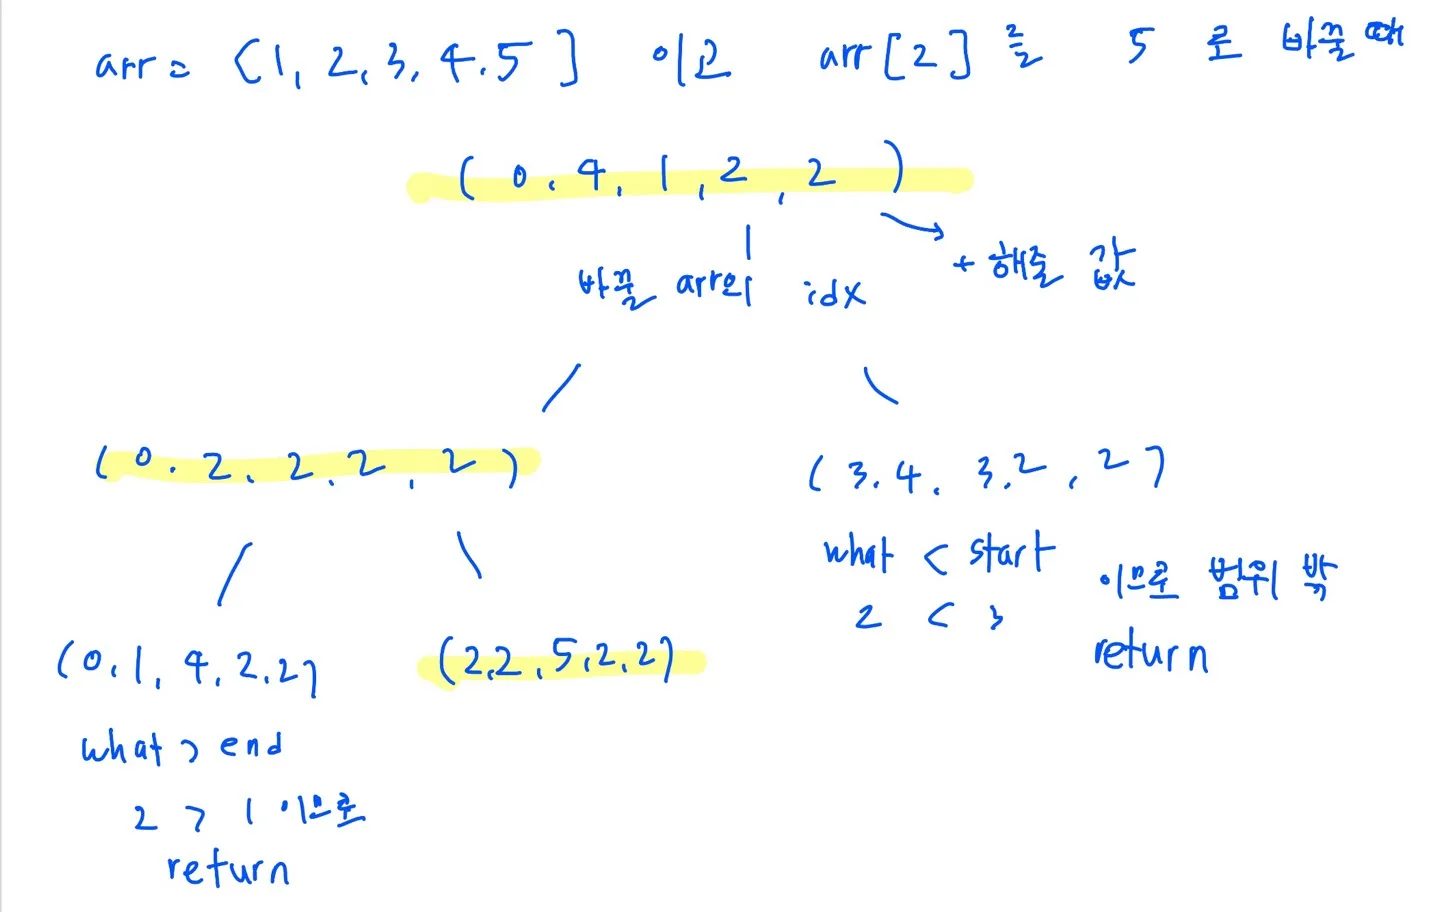 arr = [1, 2, 3, 4. 5] 이고 arr[2]를 5 로 바꿀때
( 0. 4. 1, 2, 2 )
+ 해줄 값
바꿀 arr의 idx
( 0. 2. 2. 2. 2 )
( 3. 4. 3. 2, 2 )
what < start
이므로 범위 밖
2 < 3
return
(0, 1, 4, 2. 2)
(2,2, 5, 2, 2)
what > end
2 > 1 이므로
return